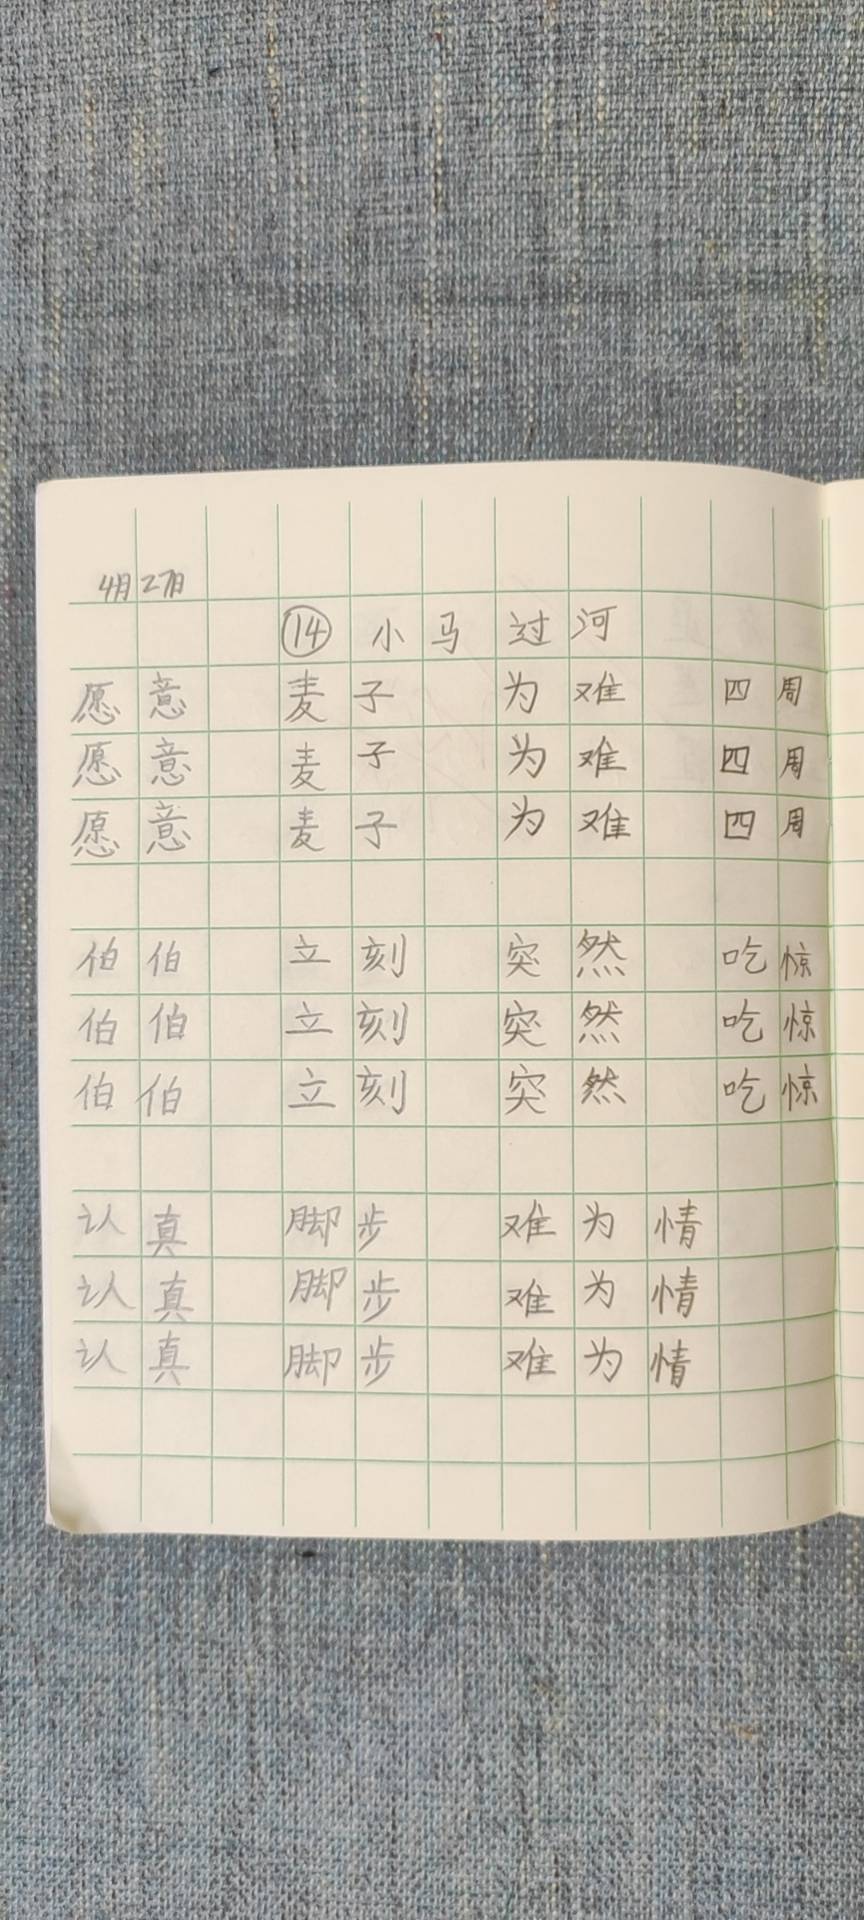 4月27日
⑭ 小马过河
愿意 麦子 为难 四周
愿意 麦子 为难 四周
愿意 麦子 为难 四周
伯伯 立刻 突然 吃惊
伯伯 立刻 突然 吃惊
伯伯 立刻 突然 吃惊
认真 脚步 难为情
认真 脚步 难为情
认真 脚步 难为情